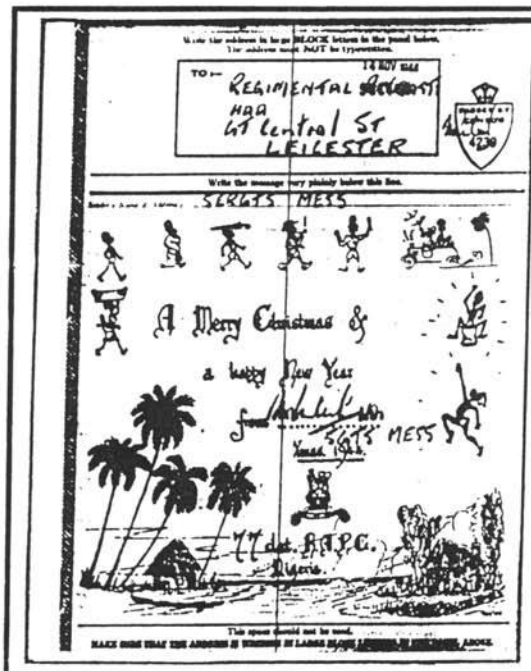 Write the address in large BLOCK letters in the panel below.
The address must NOT be typewritten.
14 NOV 1944
TO :—
REGIMENTAL
HAA
GT Central ST
LEICESTER
4230
Write the message very plainly below this line.
SERGTS MESS
A Merry Christmas &
a happy New Year
from
SGTS MESS
Xmas. 1944.
77 det. R.A.P.C.
Nigeria.
This space should not be used.
MAKE SURE THAT THE ADDRESS IS WRITTEN IN LARGE BLOCK LETTERS IN THE PANEL ABOVE.